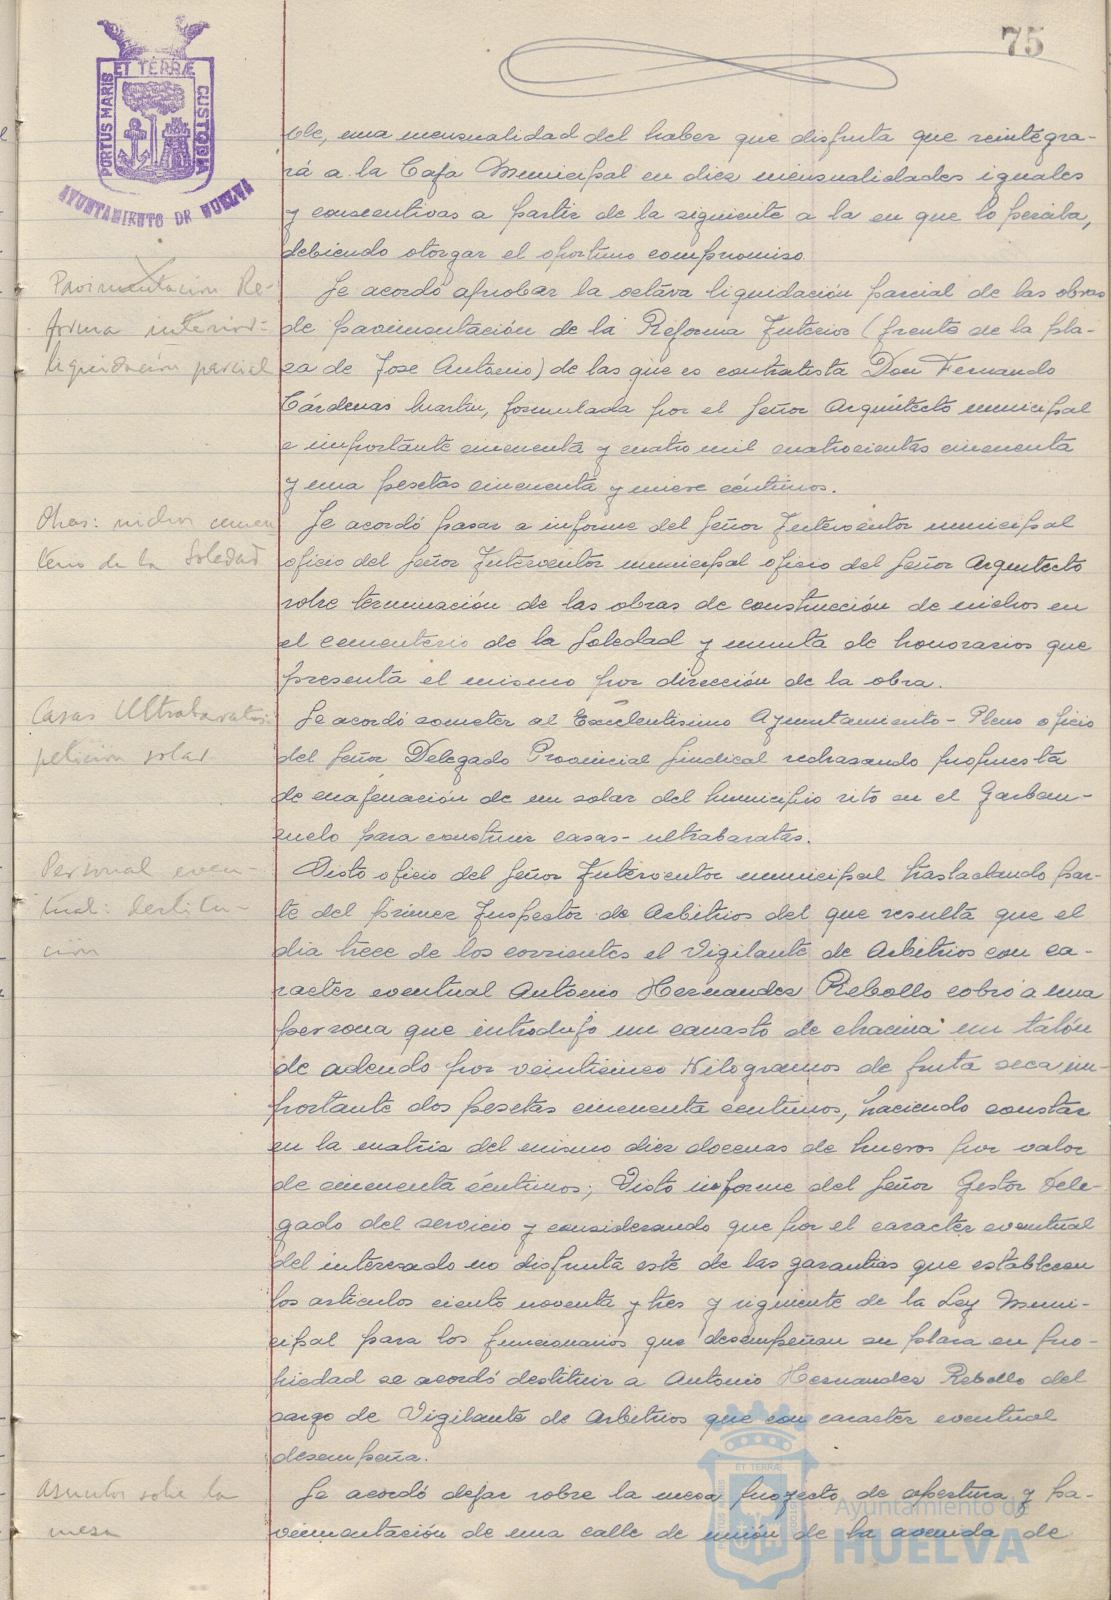 75
PORTUS MARIS ET TERRÆ CUSTODIA
AYUNTAMIENTO DE HUELVA
ble, una mensualidad del haber que disfruta que reintegra-
rá a la Caja Municipal en diez mensualidades iguales
y consecutivas a partir de la siguiente a la en que lo perciba,
debiendo otorgar el oportuno compromiso.
Pavimentación Re-
forma interior:
liquidación parcial
Se acordó aprobar la octava liquidación parcial de las obras
de pavimentación de la Reforma Interior (frente de la pla-
za de Jose Antonio) de las que es contratista Don Fernando
Cárdenas Martin, formulada por el Señor Arquitecto municipal
e importante cincuenta y cuatro mil cuatrocientas cincuenta
y una pesetas cincuenta y nueve céntimos.
Obras: nichos cemen
terio de la Soledad
Se acordó pasar a informe del Señor Interventor municipal
oficio del Señor Interventor municipal oficio del Señor Arquitecto
sobre terminación de las obras de construcción de nichos en
el cementerio de la Soledad y minuta de honorarios que
presenta el mismo por dirección de la obra.
Casas Ultrabaratas:
petición solar
Se acordó someter al Excelentisimo Ayuntamiento-Pleno oficio
del Señor Delegado Provincial Sindical rechazando propuesta
de enajenación de un solar del Municipio sito en el Garban-
zuelo para construir casas-ultrabaratas.
Personal even-
tual: destitu-
ción
Visto oficio del Señor Interventor municipal trasladando par-
te del primer Inspector de Arbitrios del que resulta que el
dia trece de los corrientes el Vigilante de Arbitrios con ca-
racter eventual Antonio Hernandez Rebollo cobró a una
persona que introdujo un canasto de chacina un talón
de adeudo por veinticinco Kilogramos de fruta seca im-
portante dos pesetas cincuenta centimos, haciendo constar
en la matriz del mismo diez docenas de huevos por valor
de cincuenta céntimos; Visto informe del Señor Gestor Dele-
gado del servicio y considerando que por el caracter eventual
del interesado no disfruta este de las garantias que establecen
los articulos ciento noventa y tres y siguiente de la Ley Muni-
cipal para los funcionarios que desempeñan su plaza en pro-
piedad se acordó destituir a Antonio Hernandez Rebollo del
cargo de Vigilante de Arbitrios que con caracter eventual
desempeña.
Asuntos sobre la
mesa
Se acordó dejar sobre la mesa proyecto de apertura y pa-
vimentación de una calle de unión de la avenida de
Ayuntamiento de
HUELVA